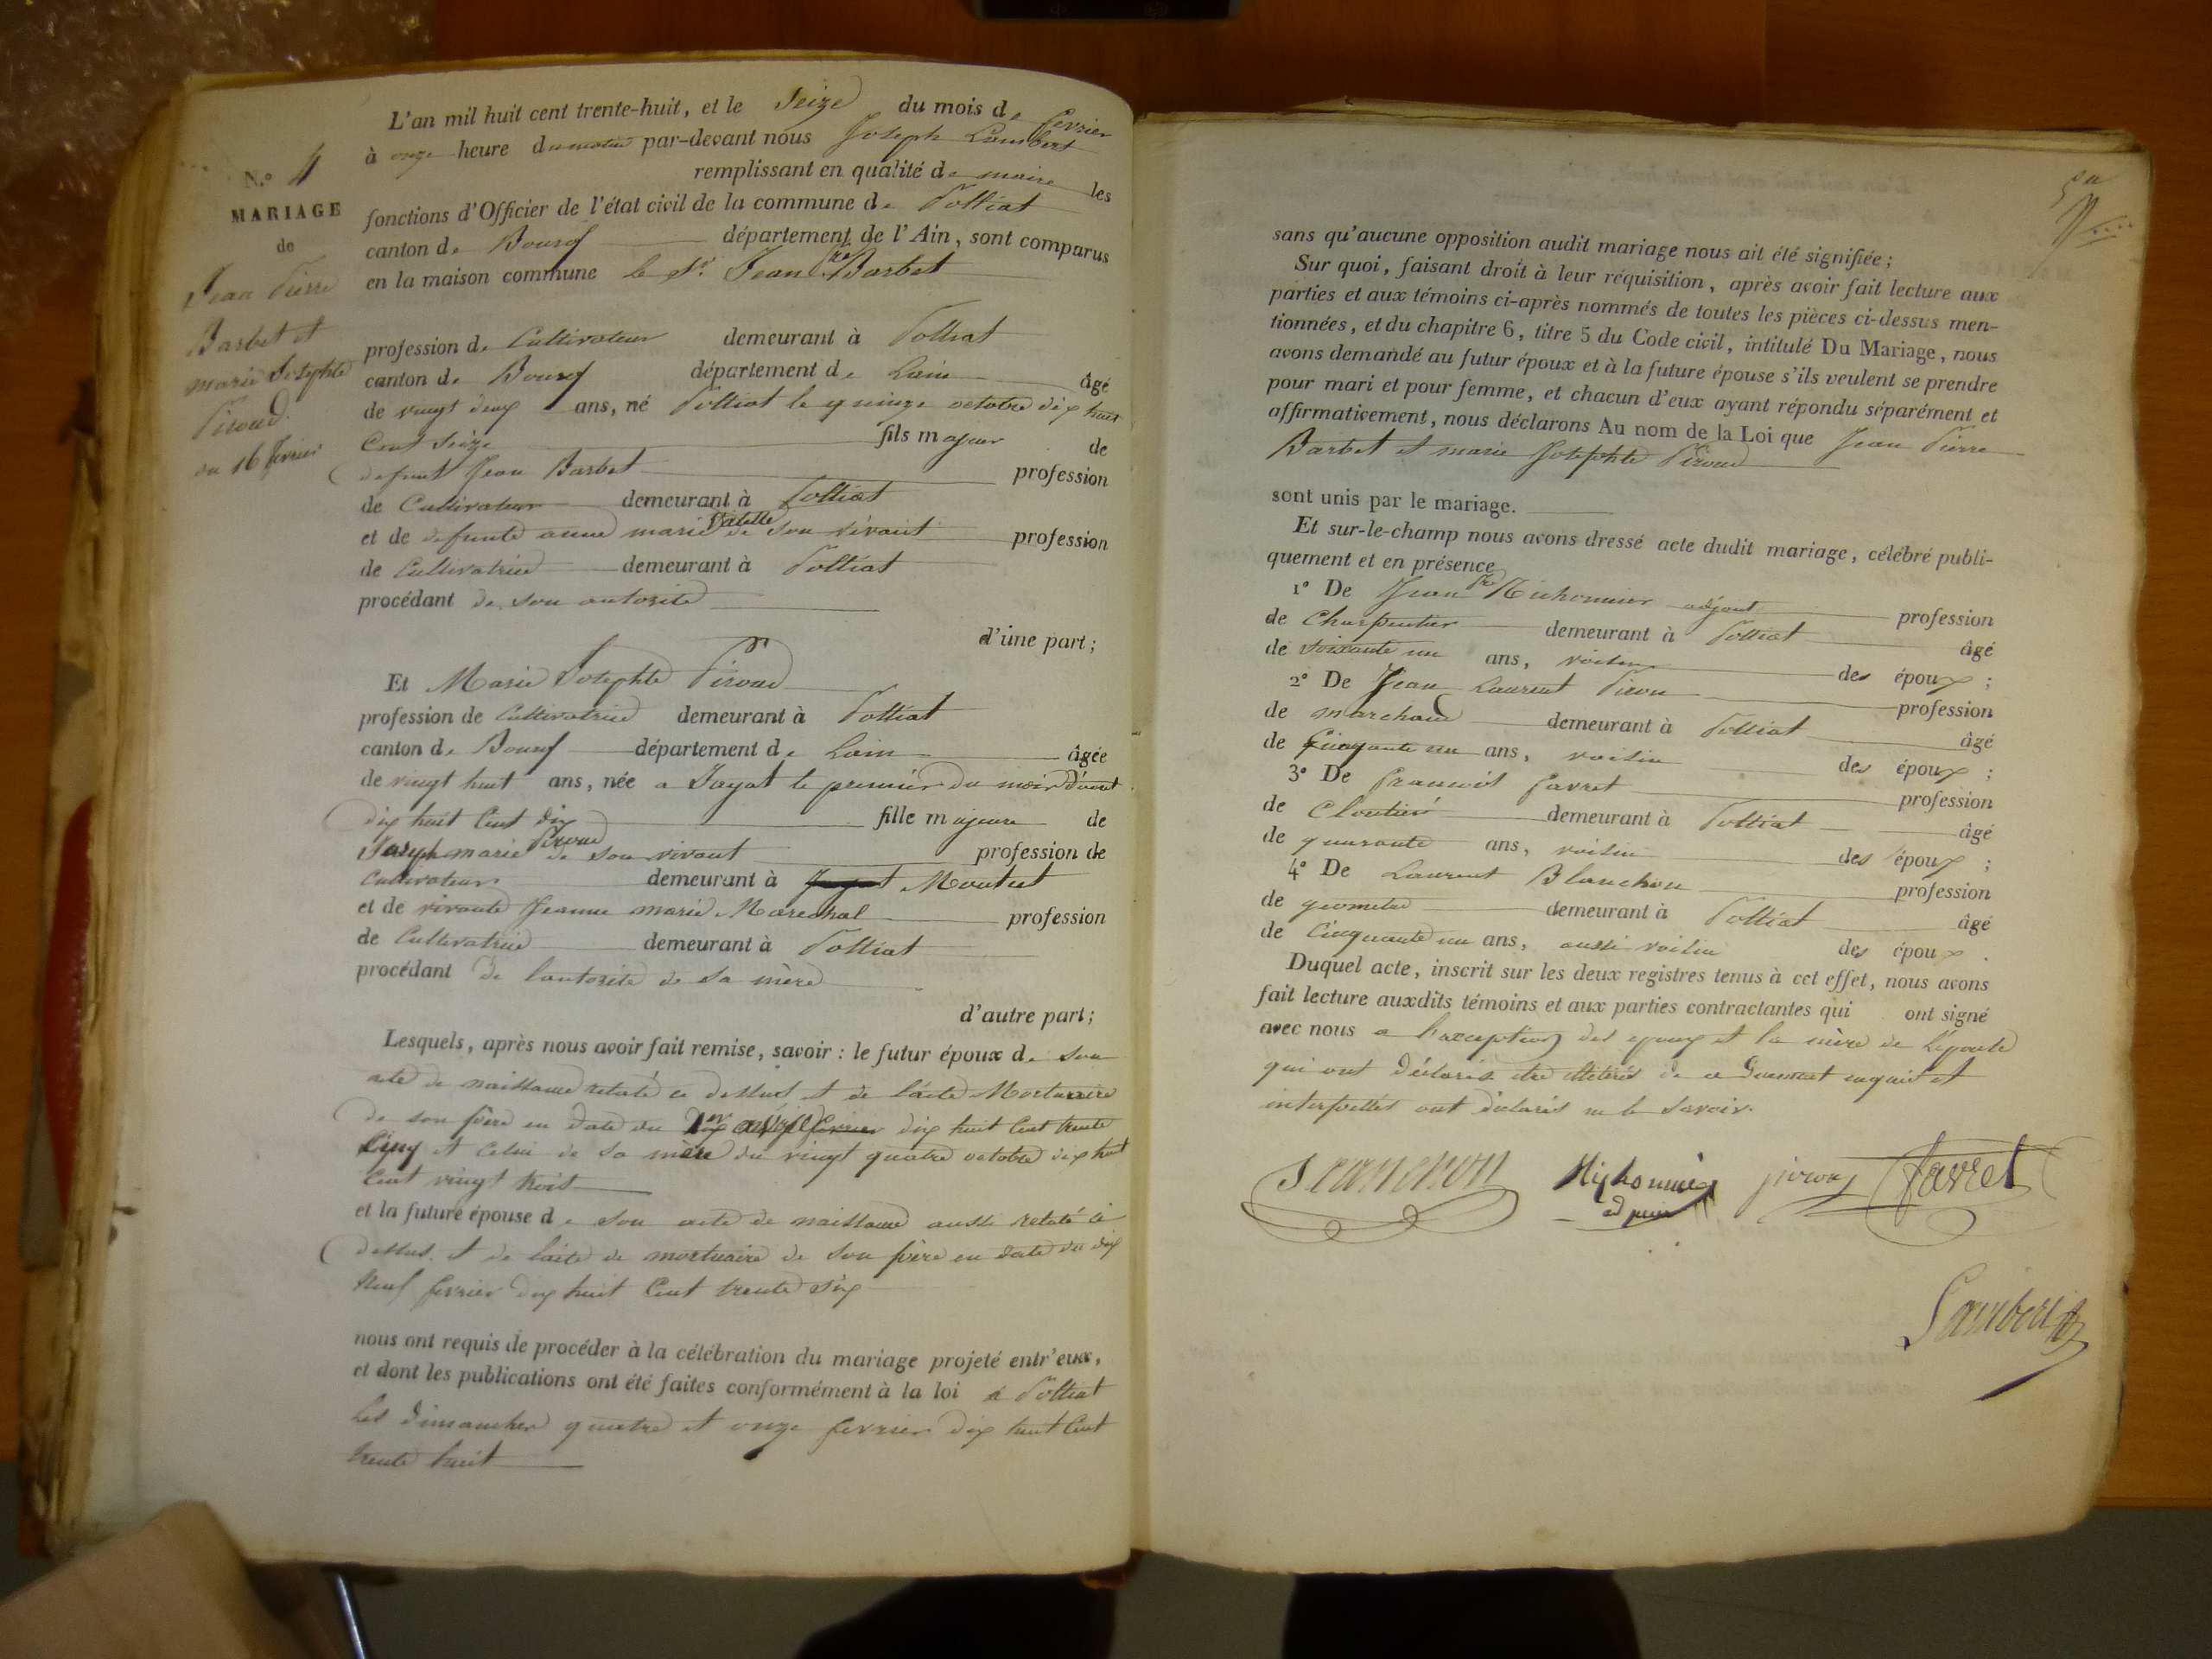 N.o 4
MARIAGE
de
Jean Pierre
Barbet et
marie Josephte
Piroud
du 16 fevrier
L'an mil huit cent trente-huit, et le Seize du mois de fevrier
à onze heure du matin par-devant nous Joseph Lambert
remplissant en qualité de maire les
fonctions d'Officier de l'état civil de la commune de Polliat
canton de Bourg département de l'Ain, sont comparus
en la maison commune le Sr. Jean Pre Barbet
profession de Cultivateur demeurant à Polliat
canton de Bourg département de Lain âgé
de vingt deux ans, né Polliat le quinze octobre dix huit
Cent Seize fils majeur de
defunt Jean Barbet profession
de Cultivateur demeurant à Polliat
et de defunte anne marie de son vivant profession
de Cultivatrice demeurant à Polliat
procédant de son autorité
d'une part;
Et Marie Josephte Piroud
profession de Cultivatrice demeurant à Polliat
canton de Bourg département de Lain âgée
de vingt huit ans, née a Jayat le premier du mois d'aout
dix huit Cent dix fille majeure de
Joseph marie Piroud de son vivant profession de
Cultivateur demeurant à Jayat Montut
et de vivante Jeanne marie Marechal profession
de Cultivatrice demeurant à Polliat
procédant de lautorité de sa mère
d'autre part;
Lesquels, après nous avoir fait remise, savoir : le futur époux de son
acte de naissance relaté ci dessus et de l'acte Mortuaire
de son père en date du 1er avril fevrier dix huit Cent trente
Cinq et Celui de sa mère du vingt quatre octobre dix huit
Cent vingt trois
et la future épouse de son acte de naissance aussi relaté ci
dessus et de l'acte de mortuaire de son père en date du dix
Neuf fevrier dix huit Cent trente Six
nous ont requis de procéder à la célébration du mariage projeté entr'eux,
et dont les publications ont été faites conformément à la loi à Polliat
Les Dimanches quatre et onze fevrier dix huit Cent
trente huit
sans qu'aucune opposition audit mariage nous ait été signifiée;
Sur quoi, faisant droit à leur réquisition, après avoir fait lecture aux
parties et aux témoins ci-après nommés de toutes les pièces ci-dessus men-
tionnées, et du chapitre 6, titre 5 du Code civil, intitulé Du Mariage, nous
avons demandé au futur époux et à la future épouse s'ils veulent se prendre
pour mari et pour femme, et chacun d'eux ayant répondu séparément et
affirmativement, nous déclarons Au nom de la Loi que Jean Pierre
Barbet et marie Josephte Piroud
sont unis par le mariage.
Et sur-le-champ nous avons dressé acte dudit mariage, célébré publi-
quement et en présence
1° De Jean Pre Nichonnier adjoint profession
de Charpentier demeurant à Polliat âgé
de soixante un ans, voisin des époux;
2° De Jean Laurent Piron profession
de marchand demeurant à Polliat âgé
de Cinquante un ans, voisin des époux;
3° De francois favret profession
de Cloutier demeurant à Polliat âgé
de quarante ans, voisin des époux;
4° De Laurent Blanchon profession
de geometre demeurant à Polliat âgé
de Cinquante un ans, aussi voisin des époux.
Duquel acte, inscrit sur les deux registres tenus à cet effet, nous avons
fait lecture auxdits témoins et aux parties contractantes qui ont signé
avec nous a l'exception des epoux et la mère de l'épouse
qui ont déclarés etre illiterés de ce Duement enquis et
interpellés ont déclarés ne le Savoir.
piron favret
Lambert